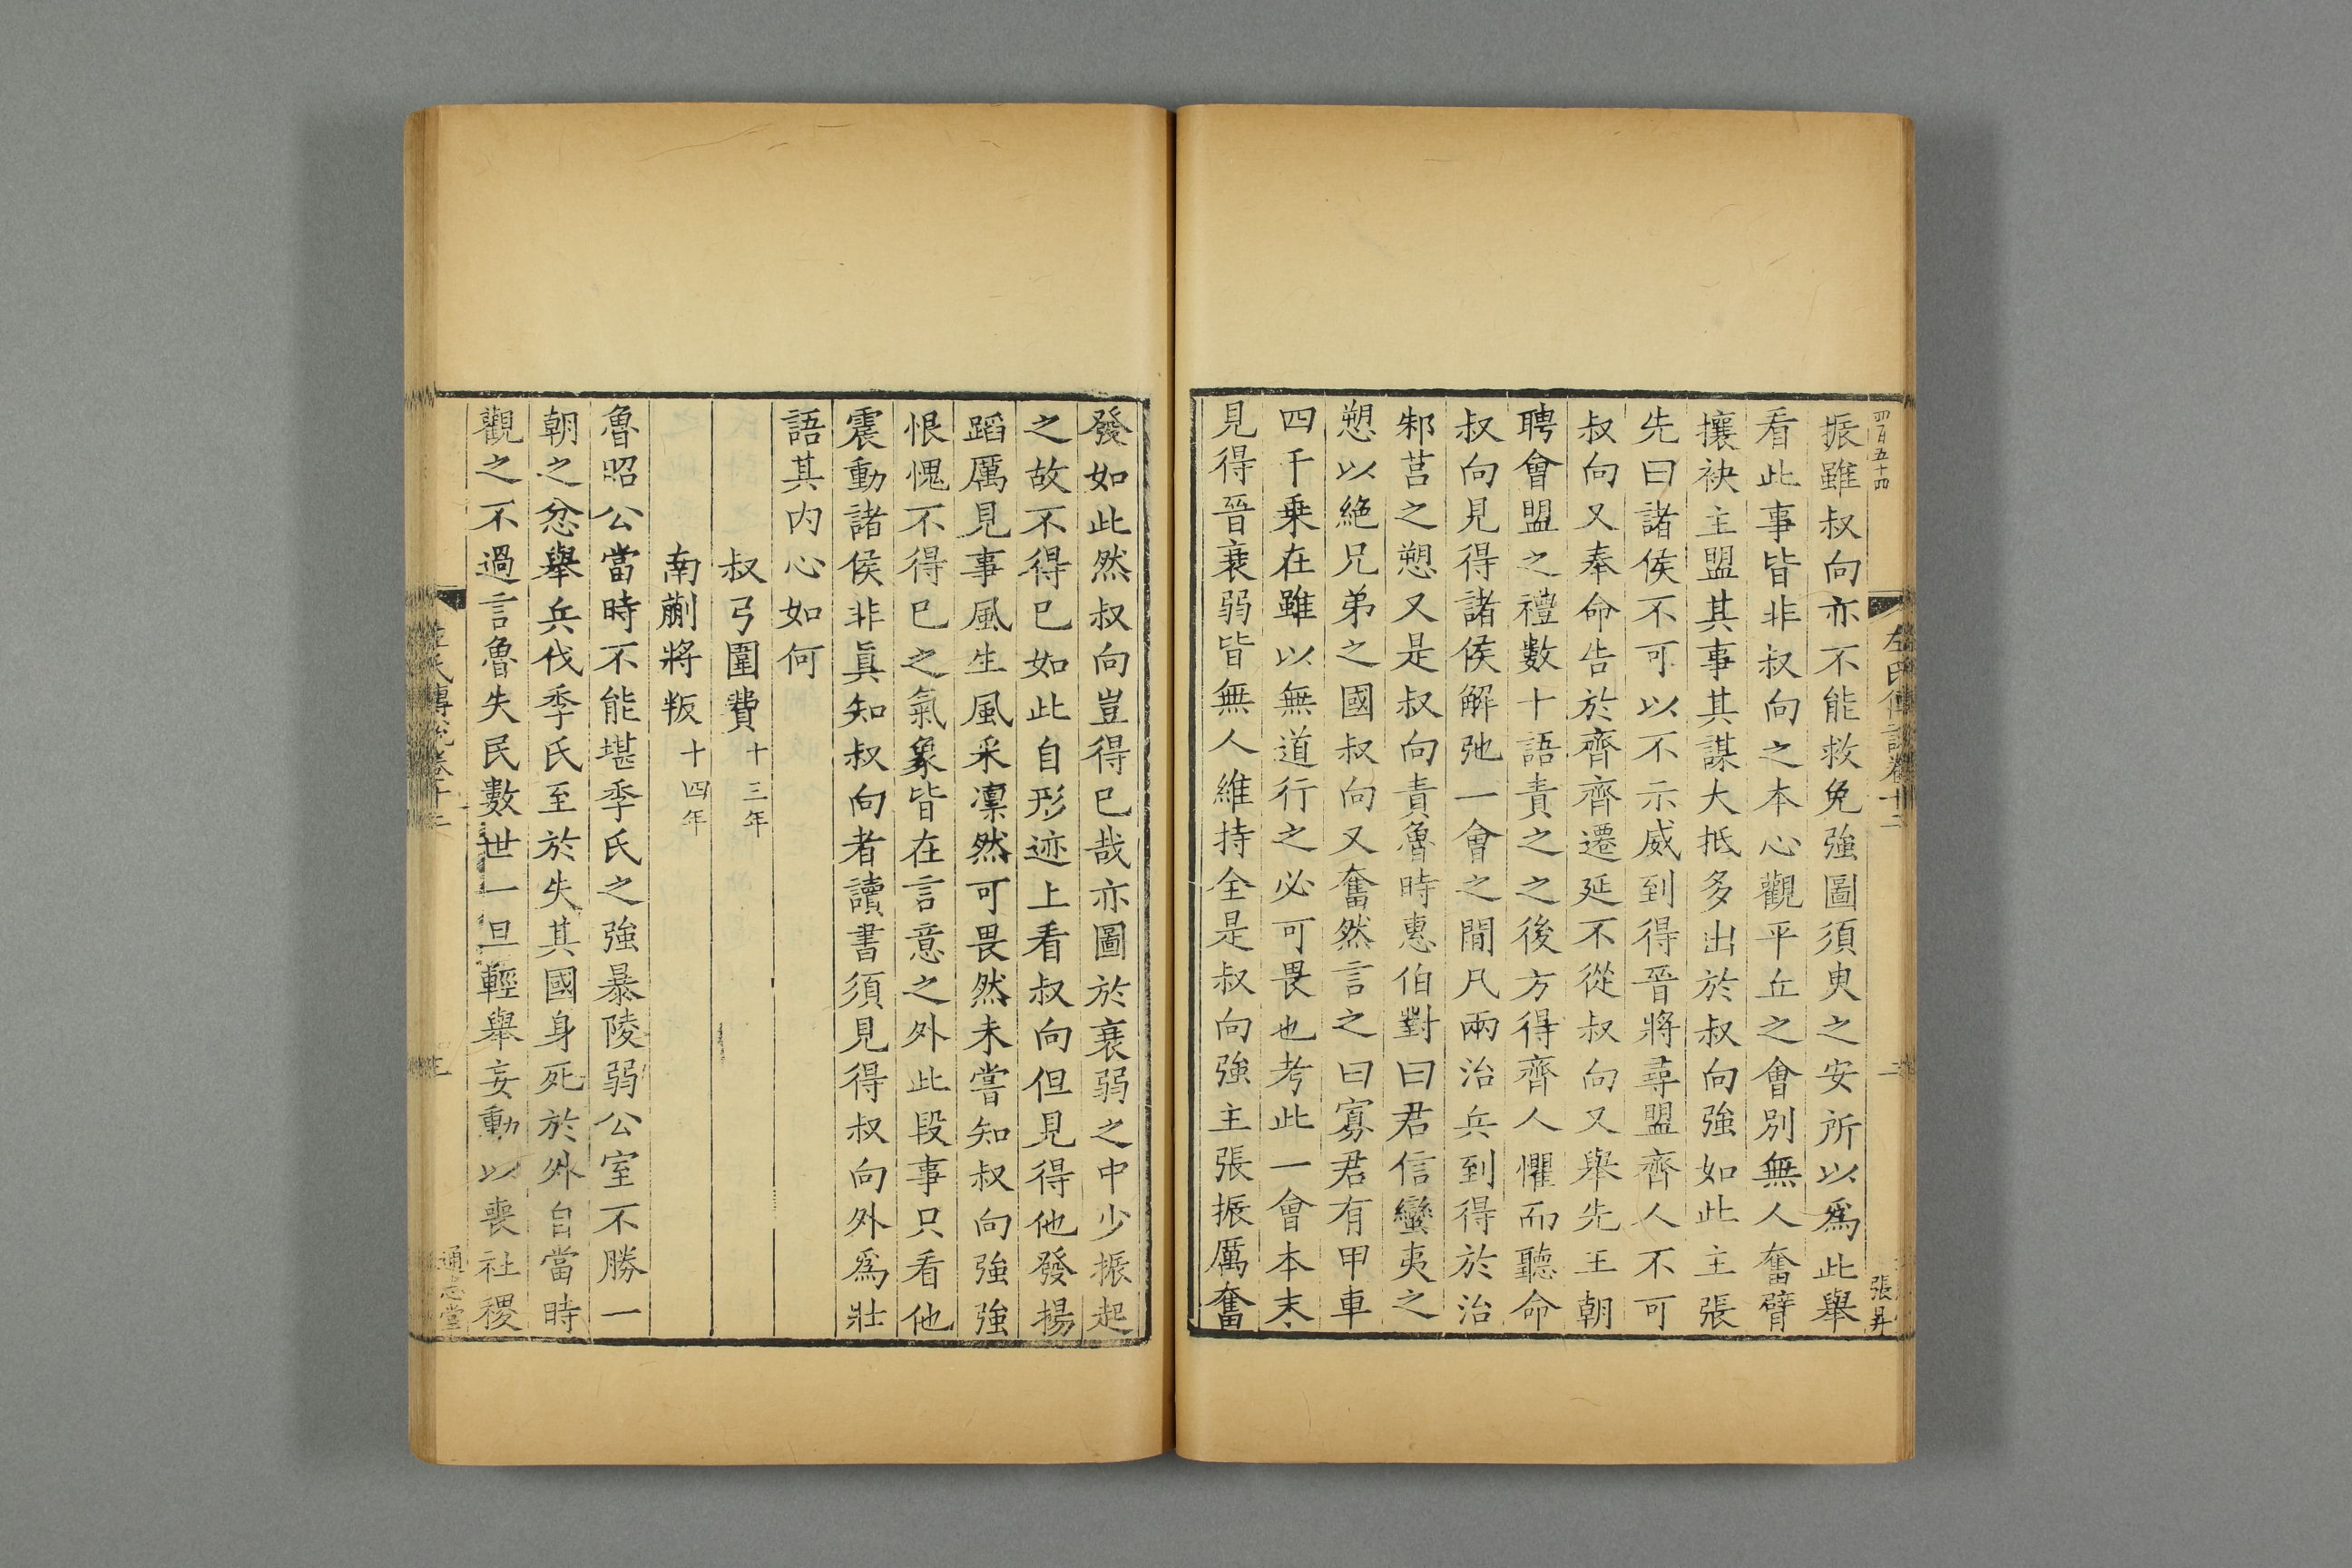 四百五十四
左氏傳說卷十二
二
張昇
振雖叔向亦不能救免強圖須臾之安所以爲此舉
看此事皆非叔向之本心觀平丘之會別無人奮臂
攘袂主盟其事其謀大抵多出於叔向強如此主張
先曰諸侯不可以不示威到得晉將尋盟齊人不可
叔向又奉命告於齊齊遷延不從叔向又舉先王朝
聘會盟之禮數十語責之之後方得齊人懼而聽命
叔向見得諸侯解弛一會之間凡兩治兵到得於治
邾莒之愬又是叔向責魯時惠伯對曰君信蠻夷之
愬以絶兄弟之國叔向又奮然言之曰寡君有甲車
四千乗在雖以無道行之必可畏也考此一會本末
見得晉衰弱皆無人維持全是叔向強主張振厲奮
發如此然叔向豈得已哉亦圖於衰弱之中少振起
之故不得已如此自形迹上看叔向但見得他發揚
蹈厲見事風生風采凛然可畏然未嘗知叔向強強
恨愧不得已之氣象皆在言意之外此段事只看他
震動諸侯非眞知叔向者讀書須見得叔向外爲壯
語其内心如何
叔弓圍費十三年
南蒯將叛十四年
魯昭公當時不能堪季氏之強暴陵弱公室不勝一
朝之忿舉兵伐季氏至於失其國身死於外自當時
觀之不過言魯失民數世一旦輕舉妄動以喪社稷
左氏傳說卷十二
通志堂